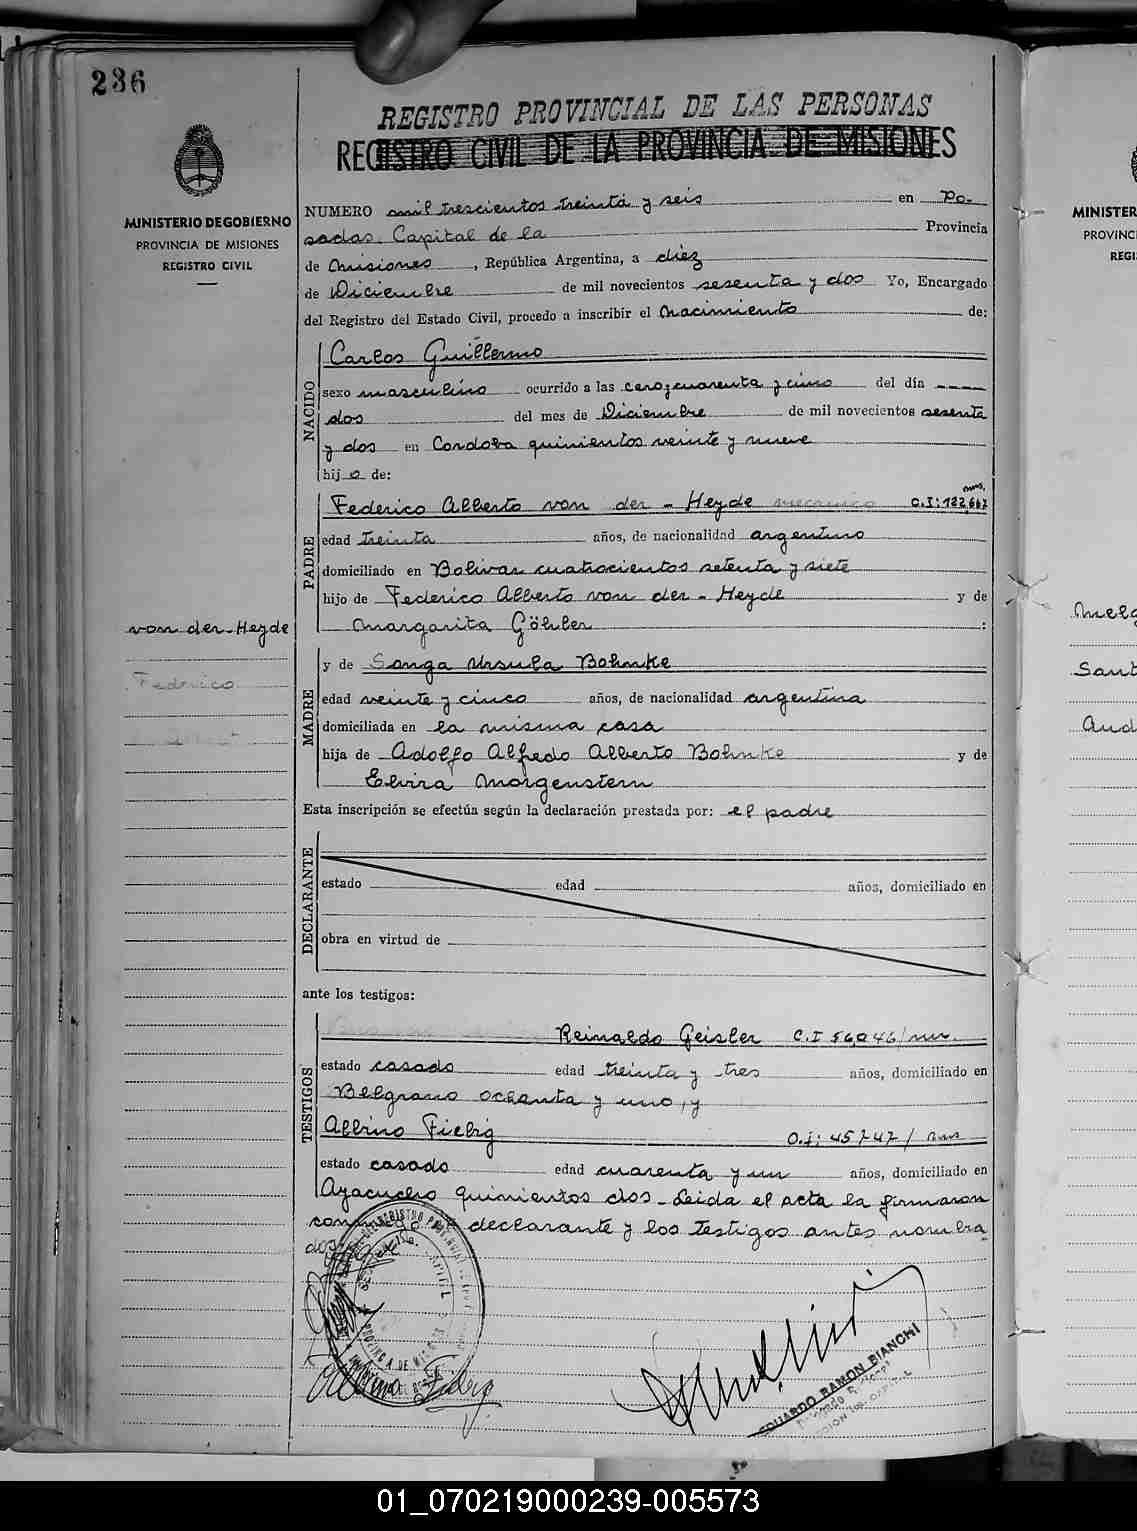 236
REGISTRO PROVINCIAL DE LAS PERSONAS
REGISTRO CIVIL DE LA PROVINCIA DE MISIONES
MINISTERIO DE GOBIERNO
PROVINCIA DE MISIONES
REGISTRO CIVIL
NUMERO mil trescientos treinta y seis en Po-
sadas, Capital de la Provincia
de Misiones, República Argentina, a diez
de Diciembre de mil novecientos sesenta y dos Yo, Encargado
del Registro del Estado Civil, procedo a inscribir el nacimiento de:
NACIDO
Carlos Guillermo
sexo masculino ocurrido a las cero y cuarenta y cinco del día ----
dos del mes de Diciembre de mil novecientos sesenta
y dos en Cordoba quinientos veinte y nueve
hijo de:
PADRE
Federico Alberto von der - Heyde mecanico C.I: 122,667 mns.
edad treinta años, de nacionalidad argentino
domiciliado en Bolivar cuatrocientos setenta y siete
hijo de Federico Alberto von der - Heyde y de
Margarita Göhler :
von der - Heyde
Federico
MADRE
y de Songa Ursula Bohnke
edad veinte y cinco años, de nacionalidad argentina
domiciliada en la misma casa
hija de Adolfo Alfredo Alberto Bohnke y de
Elvira Morgenstern
Esta inscripción se efectúa según la declaración prestada por: el padre
DECLARANTE
estado edad años, domiciliado en
obra en virtud de
ante los testigos:
TESTIGOS
Reinaldo Geisler C.I 56,046/mns.
estado casado edad treinta y tres años, domiciliado en
Belgrano ochenta y uno, y
Albino Fiebig C.I: 45747/mns
estado casado edad cuarenta y un años, domiciliado en
Ayacucho quinientos dos - Leida el acta la firmaron
declarante y los testigos antes nombra
dos
Albino Fiebig
EDUARDO RAMON BIANCHI
MINISTER
PROVINC
REGI
Melg
Sant
Aud
01_070219000239-005573